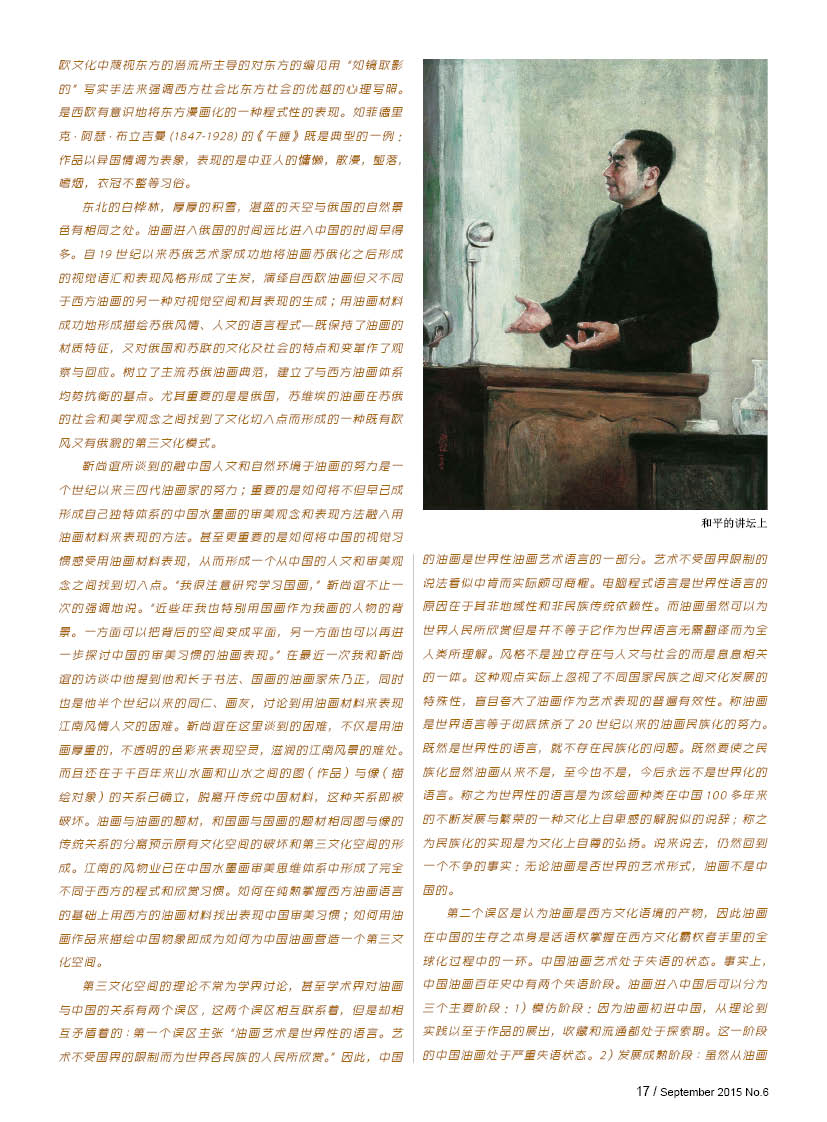 欧文化中蔑视东方的潜流所主导的对东方的偏见用“如镜取影
的”写实手法来强调西方社会比东方社会的优越的心理写照。
是西欧有意识地将东方漫画化的一种程式性的表现。如菲德里
克·阿瑟·布立吉曼 (1847-1928) 的《午睡》既是典型的一例；
作品以异国情调为表象，表现的是中亚人的慵懒，散漫，堕落，
嗜烟，衣冠不整等习俗。
东北的白桦林，厚厚的积雪，湛蓝的天空与俄国的自然景
色有相同之处。油画进入俄国的时间远比进入中国的时间早得
多。自 19 世纪以来苏俄艺术家成功地将油画苏俄化之后形成
的视觉语汇和表现风格形成了生发，演绎自西欧油画但又不同
于西方油画的另一种对视觉空间和其表现的生成；用油画材料
成功地形成描绘苏俄风情、人文的语言程式—既保持了油画的
材质特征，又对俄国和苏联的文化及社会的特点和变革作了观
察与回应。树立了主流苏俄油画典范，建立了与西方油画体系
均势抗衡的基点。尤其重要的是是俄国，苏维埃的油画在苏俄
的社会和美学观念之间找到了文化切入点而形成的一种既有欧
风又有俄貌的第三文化模式。
靳尚谊所谈到的融中国人文和自然环境于油画的努力是一
个世纪以来三四代油画家的努力；重要的是如何将不但早已成
形成自己独特体系的中国水墨画的审美观念和表现方法融入用
油画材料来表现的方法。甚至更重要的是如何将中国的视觉习
惯感受用油画材料表现，从而形成一个从中国的人文和审美观
念之间找到切入点。“我很注意研究学习国画，”靳尚谊不止一
次的强调地说。“近些年我也特别用国画作为我画的人物的背
景。一方面可以把背后的空间变成平面，另一方面也可以再进
一步探讨中国的审美习惯的油画表现。”在最近一次我和靳尚
谊的访谈中他提到他和长于书法、国画的油画家朱乃正，同时
也是他半个世纪以来的同仁、画友，讨论到用油画材料来表现
江南风情人文的困难。靳尚谊在这里谈到的困难，不仅是用油
画厚重的，不透明的色彩来表现空灵，滋润的江南风景的难处。
而且还在于千百年来山水画和山水之间的图（作品）与像（描
绘对象）的关系已确立，脱离开传统中国材料，这种关系即被
破坏。油画与油画的题材，和国画与国画的题材相同图与像的
传统关系的分离预示原有文化空间的破坏和第三文化空间的形
成。江南的风物业已在中国水墨画审美思维体系中形成了完全
不同于西方的程式和欣赏习惯。如何在纯熟掌握西方油画语言
的基础上用西方的油画材料找出表现中国审美习惯；如何用油
画作品来描绘中国物象即成为如何为中国油画营造一个第三文
化空间。
第三文化空间的理论不常为学界讨论，甚至学术界对油画
与中国的关系有两个误区，这两个误区相互联系着，但是却相
互矛盾着的：第一个误区主张“油画艺术是世界性的语言。艺
术不受国界的限制而为世界各民族的人民所欣赏。”因此，中国
和平的讲坛上
的油画是世界性油画艺术语言的一部分。艺术不受国界限制的
说法看似中肯而实际颇可商榷。电脑程式语言是世界性语言的
原因在于其非地域性和非民族传统依赖性。而油画虽然可以为
世界人民所欣赏但是并不等于它作为世界语言无需翻译而为全
人类所理解。风格不是独立存在与人文与社会的而是息息相关
的一体。这种观点实际上忽视了不同国家民族之间文化发展的
特殊性，盲目夸大了油画作为艺术表现的普遍有效性。称油画
是世界语言等于彻底抹杀了 20 世纪以来的油画民族化的努力。
既然是世界性的语言，就不存在民族化的问题。既然要使之民
族化显然油画从来不是，至今也不是，今后永远不是世界化的
语言。称之为世界性的语言是为该绘画种类在中国 100 多年来
的不断发展与繁荣的一种文化上自卑感的解脱似的说辞；称之
为民族化的实现是为文化上自尊的弘扬。说来说去，仍然回到
一个不争的事实：无论油画是否世界的艺术形式，油画不是中
国的。
第二个误区是认为油画是西方文化语境的产物，因此油画
在中国的生存之本身是话语权掌握在西方文化霸权者手里的全
球化过程中的一环。中国油画艺术处于失语的状态。事实上，
中国油画百年史中有两个失语阶段。油画进入中国后可以分为
三个主要阶段：1）模仿阶段：因为油画初进中国，从理论到
实践以至于作品的展出，收藏和流通都处于探索期。这一阶段
的中国油画处于严重失语状态。2）发展成熟阶段：虽然从油画
17 / September 2015 No.6